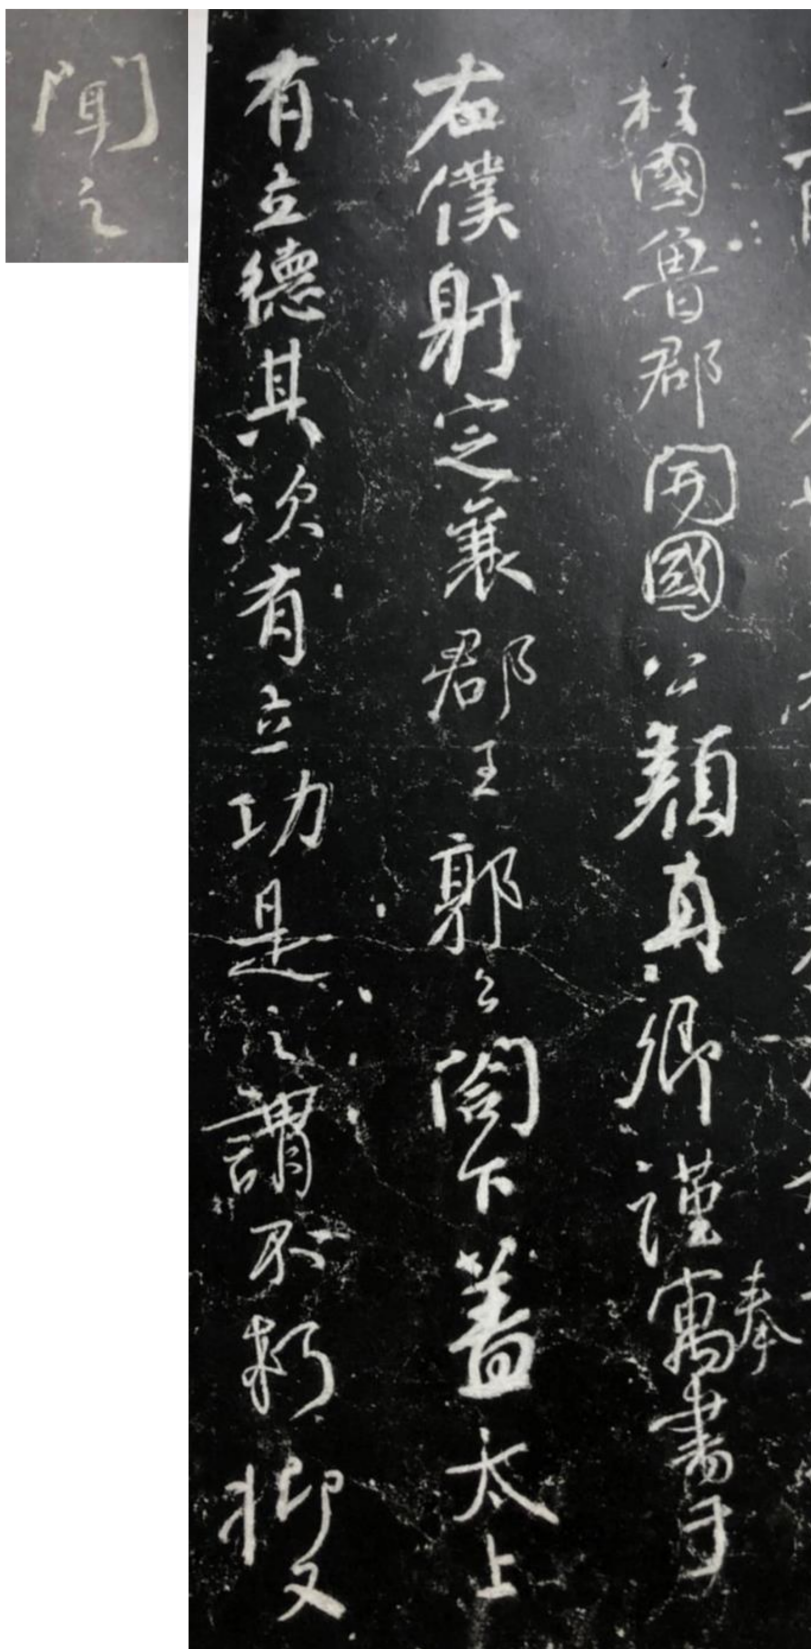 柱國魯郡開國公顏真卿謹奉寓書于
右僕射定襄郡王郭公閤下蓋太上
有立德其次有立功是之謂不朽抑又
聞之